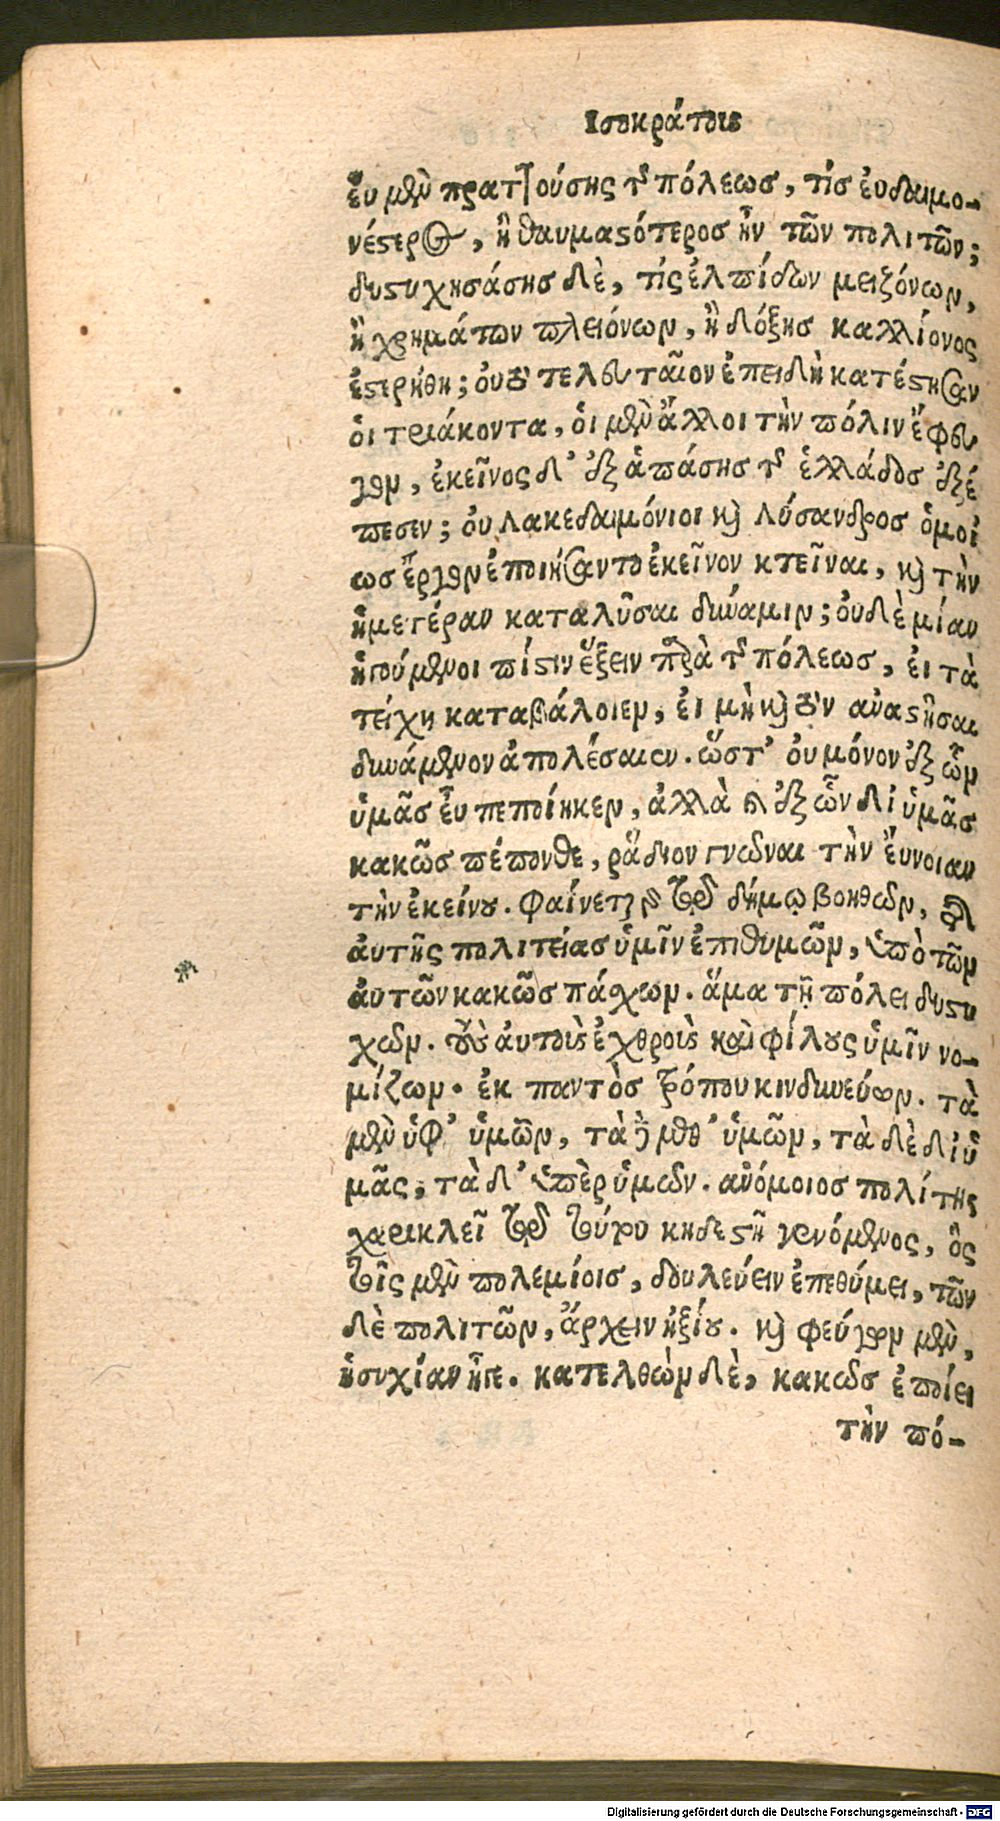 Ἰσοκράτους
ἐυ μὲν πραττούσης τῆς πόλεως, τίς ἐυδαιμο-
νέστερος, ἢ θαυμαστότερος ἦν τῶν πολιτῶν;
δυστυχησάσης δὲ, τίς ἐλπίδων μειζόνων,
ἢ χρημάτων πλειόνων, ἢ δόξης καλλίονος
ἐστερήθη; ὀυ τὸ τελευταῖον ἐπειδὴ κατέστησαν
ὁι τριάκοντα, ὁι μὲν ἄλλοι τὴν πόλιν ἔφευ
γον, ἐκεῖνος δ' ἐξ ἁπάσης τῆς ἑλλάδος ἐξέ
πεσεν; ὀυ λακεδαιμόνιοι καὶ λύσανδρος ὁμοί
ως ἔργον ἐποιήσαντο ἐκεῖνον κτεῖναι, καὶ τὴν
ἡμετέραν καταλῦσαι δύναμιν; ὀυδὲ μίαν
ἡγούμενοι πίστιν ἕξειν παρὰ τῆς πόλεως, ἐι τὰ
τείχη καταβάλοιεν, ἐι μὴ καὶ τὸν ἀναστῆσαι
δυνάμενον ἀπολέσαιεν. ὥστ' ὀυ μόνον ἐξ ὧν
ὑμᾶς ἐυ πεποίηκεν, ἀλλὰ καὶ ἐξ ὧν δἰ ὑμᾶς
κακῶς πέπονθε, ῥᾴδιον γνῶναι τὴν ἔυνοιαν
τὴν ἐκείνου. Φαίνεται γὰρ τῷ δήμῳ βοηθῶν, τῆς
ἀυτῆς πολιτείας ὑμῖν ἐπιθυμῶν, ὑπὸ τῶν
ἀυτῶν κακῶς πάσχων. ἅμα τῇ πόλει δυστυ
χῶν. τοὺς ἀυτοὺς ἐχθροὺς καὶ φίλους ὑμῖν νο-
μίζων. ἐκ παντὸς τρόπου κινδυνεύων. τὰ
μὲν ὑφ' ὑμῶν, τὰ δὲ μεθ' ὑμῶν, τὰ δὲ δἰ ὑ
μᾶς, τὰ δ' ὑπὲρ ὑμῶν. ἀνόμοιος πολίτης
χαρικλεῖ τῷ τούτου κηδεστῇ γενόμενος, ὃς
τοῖς μὲν πολεμίοις, δουλεύειν ἐπεθύμει, τῶν
δὲ πολιτῶν, ἄρχειν ἠξίου. καὶ φεύγων μὲν,
ἡσυχίαν ἦγε. κατελθὼν δὲ, κακῶς ἐποίει
τὴν πό-
Digitalisierung gefördert durch die Deutsche Forschungsgemeinschaft - DFG